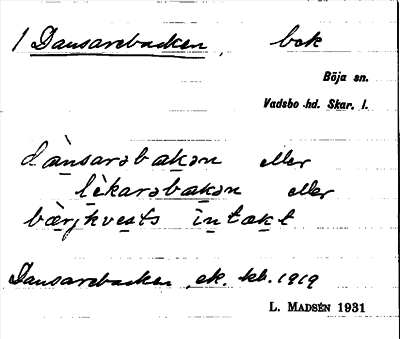 1 Dansarebacken, bek
Böja sn.
Vadsbo hd. Skar. l.
dànsarəbakən eller
lèkarəbakən eller
bærjkvests intækt
Dansarebacken ek. kb. 1919
L. MADSÉN 1931